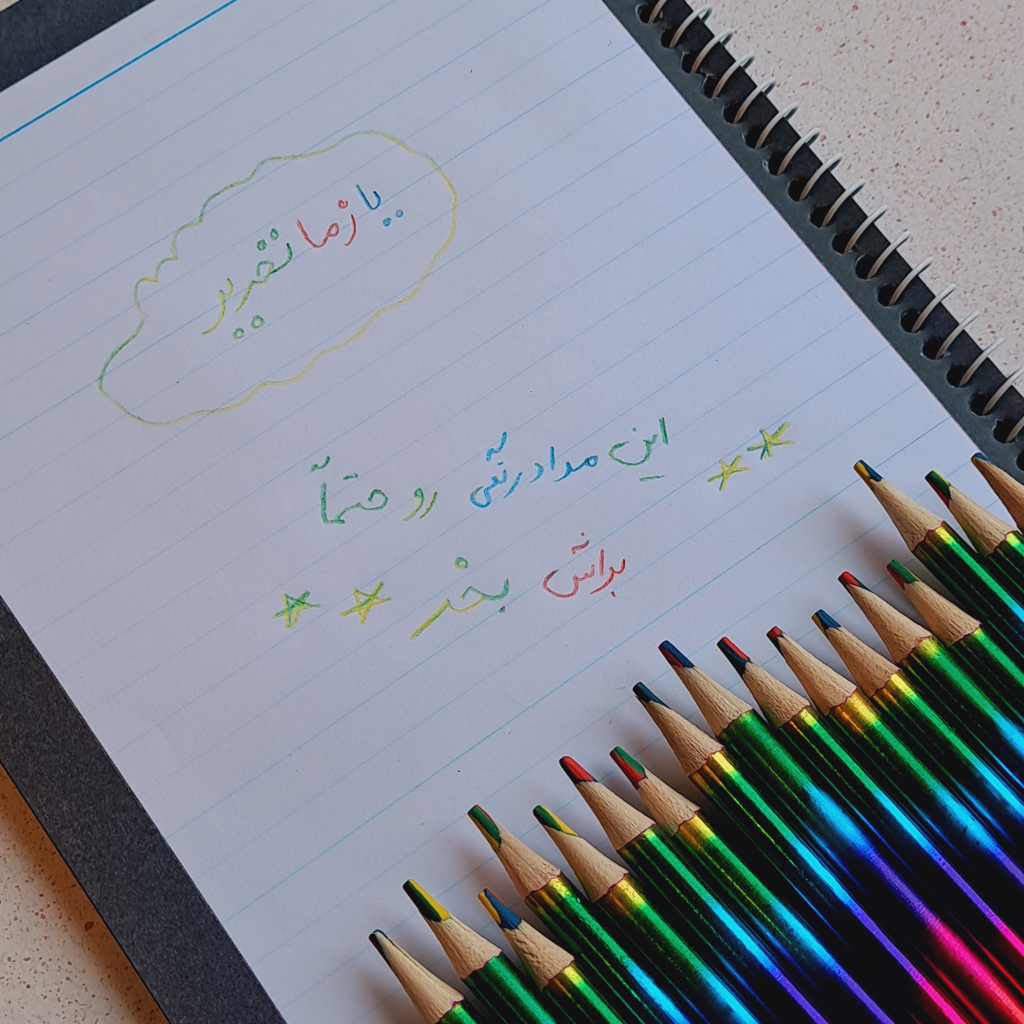 یازما تحریر
این مدادرنگی رو حتماً
براش بخر